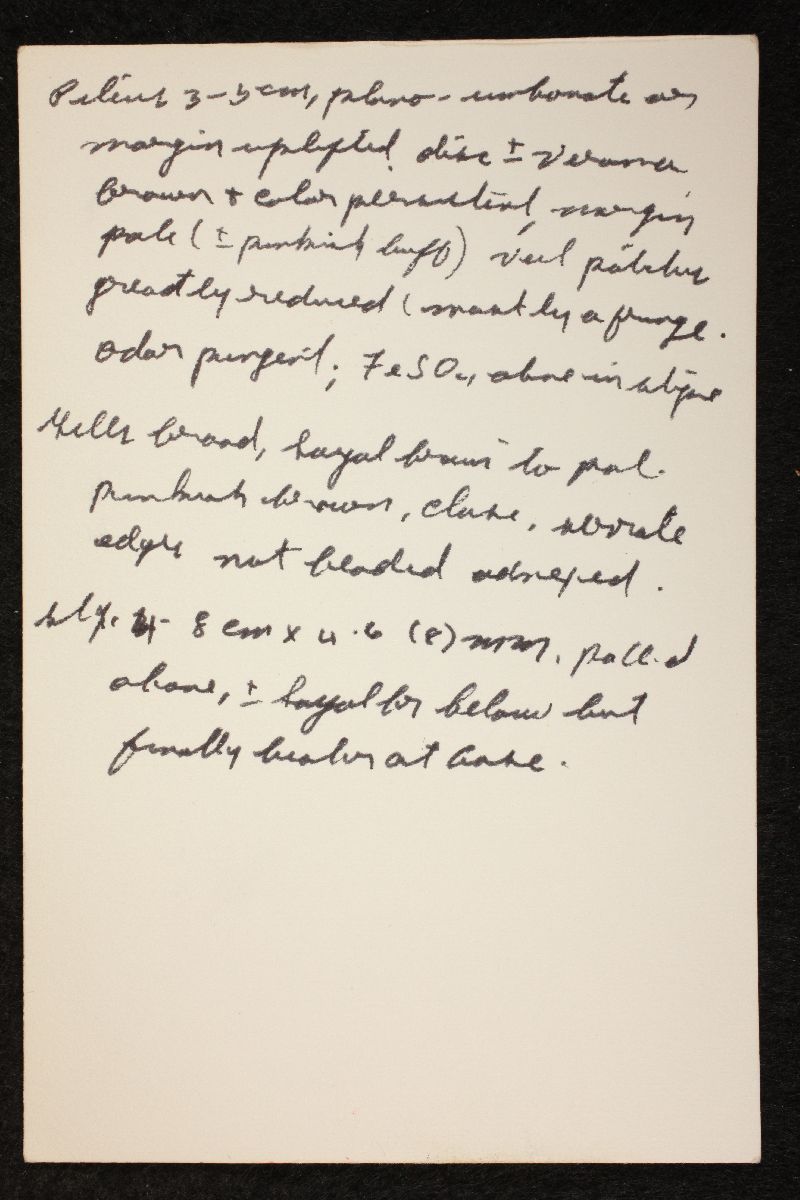 Pileus 3-5 cm, plano-umbonate or
margin uplifted, disc ± Verona
brown & color persistent, margin
pale (± pinkish buff) veil patches
greatly reduced (mostly a fringe.
odor pungent; FeSO4, olive in stipe
Gills broad, hazel brown to pale
pinkish brown, close, serrate
edges not beaded adnexed.
stip. 4-8 cm x 4-6 (8) mm, pallid
above, ± below but
finally at base.